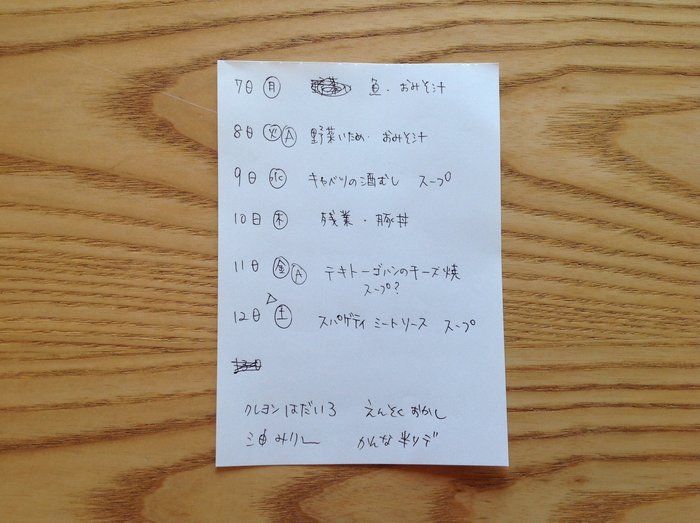 7日 月 魚・おみそ汁
8日 火 A 野菜いため・おみそ汁
9日 水 キャベツの酒むし スープ
10日 木 残業・豚丼
11日 金 A テキトーゴハンのチーズ焼
スープ?
12日 土 スパゲティ ミートソース スープ
クレヨン はだいろ えんそく おかし
みりん かんな